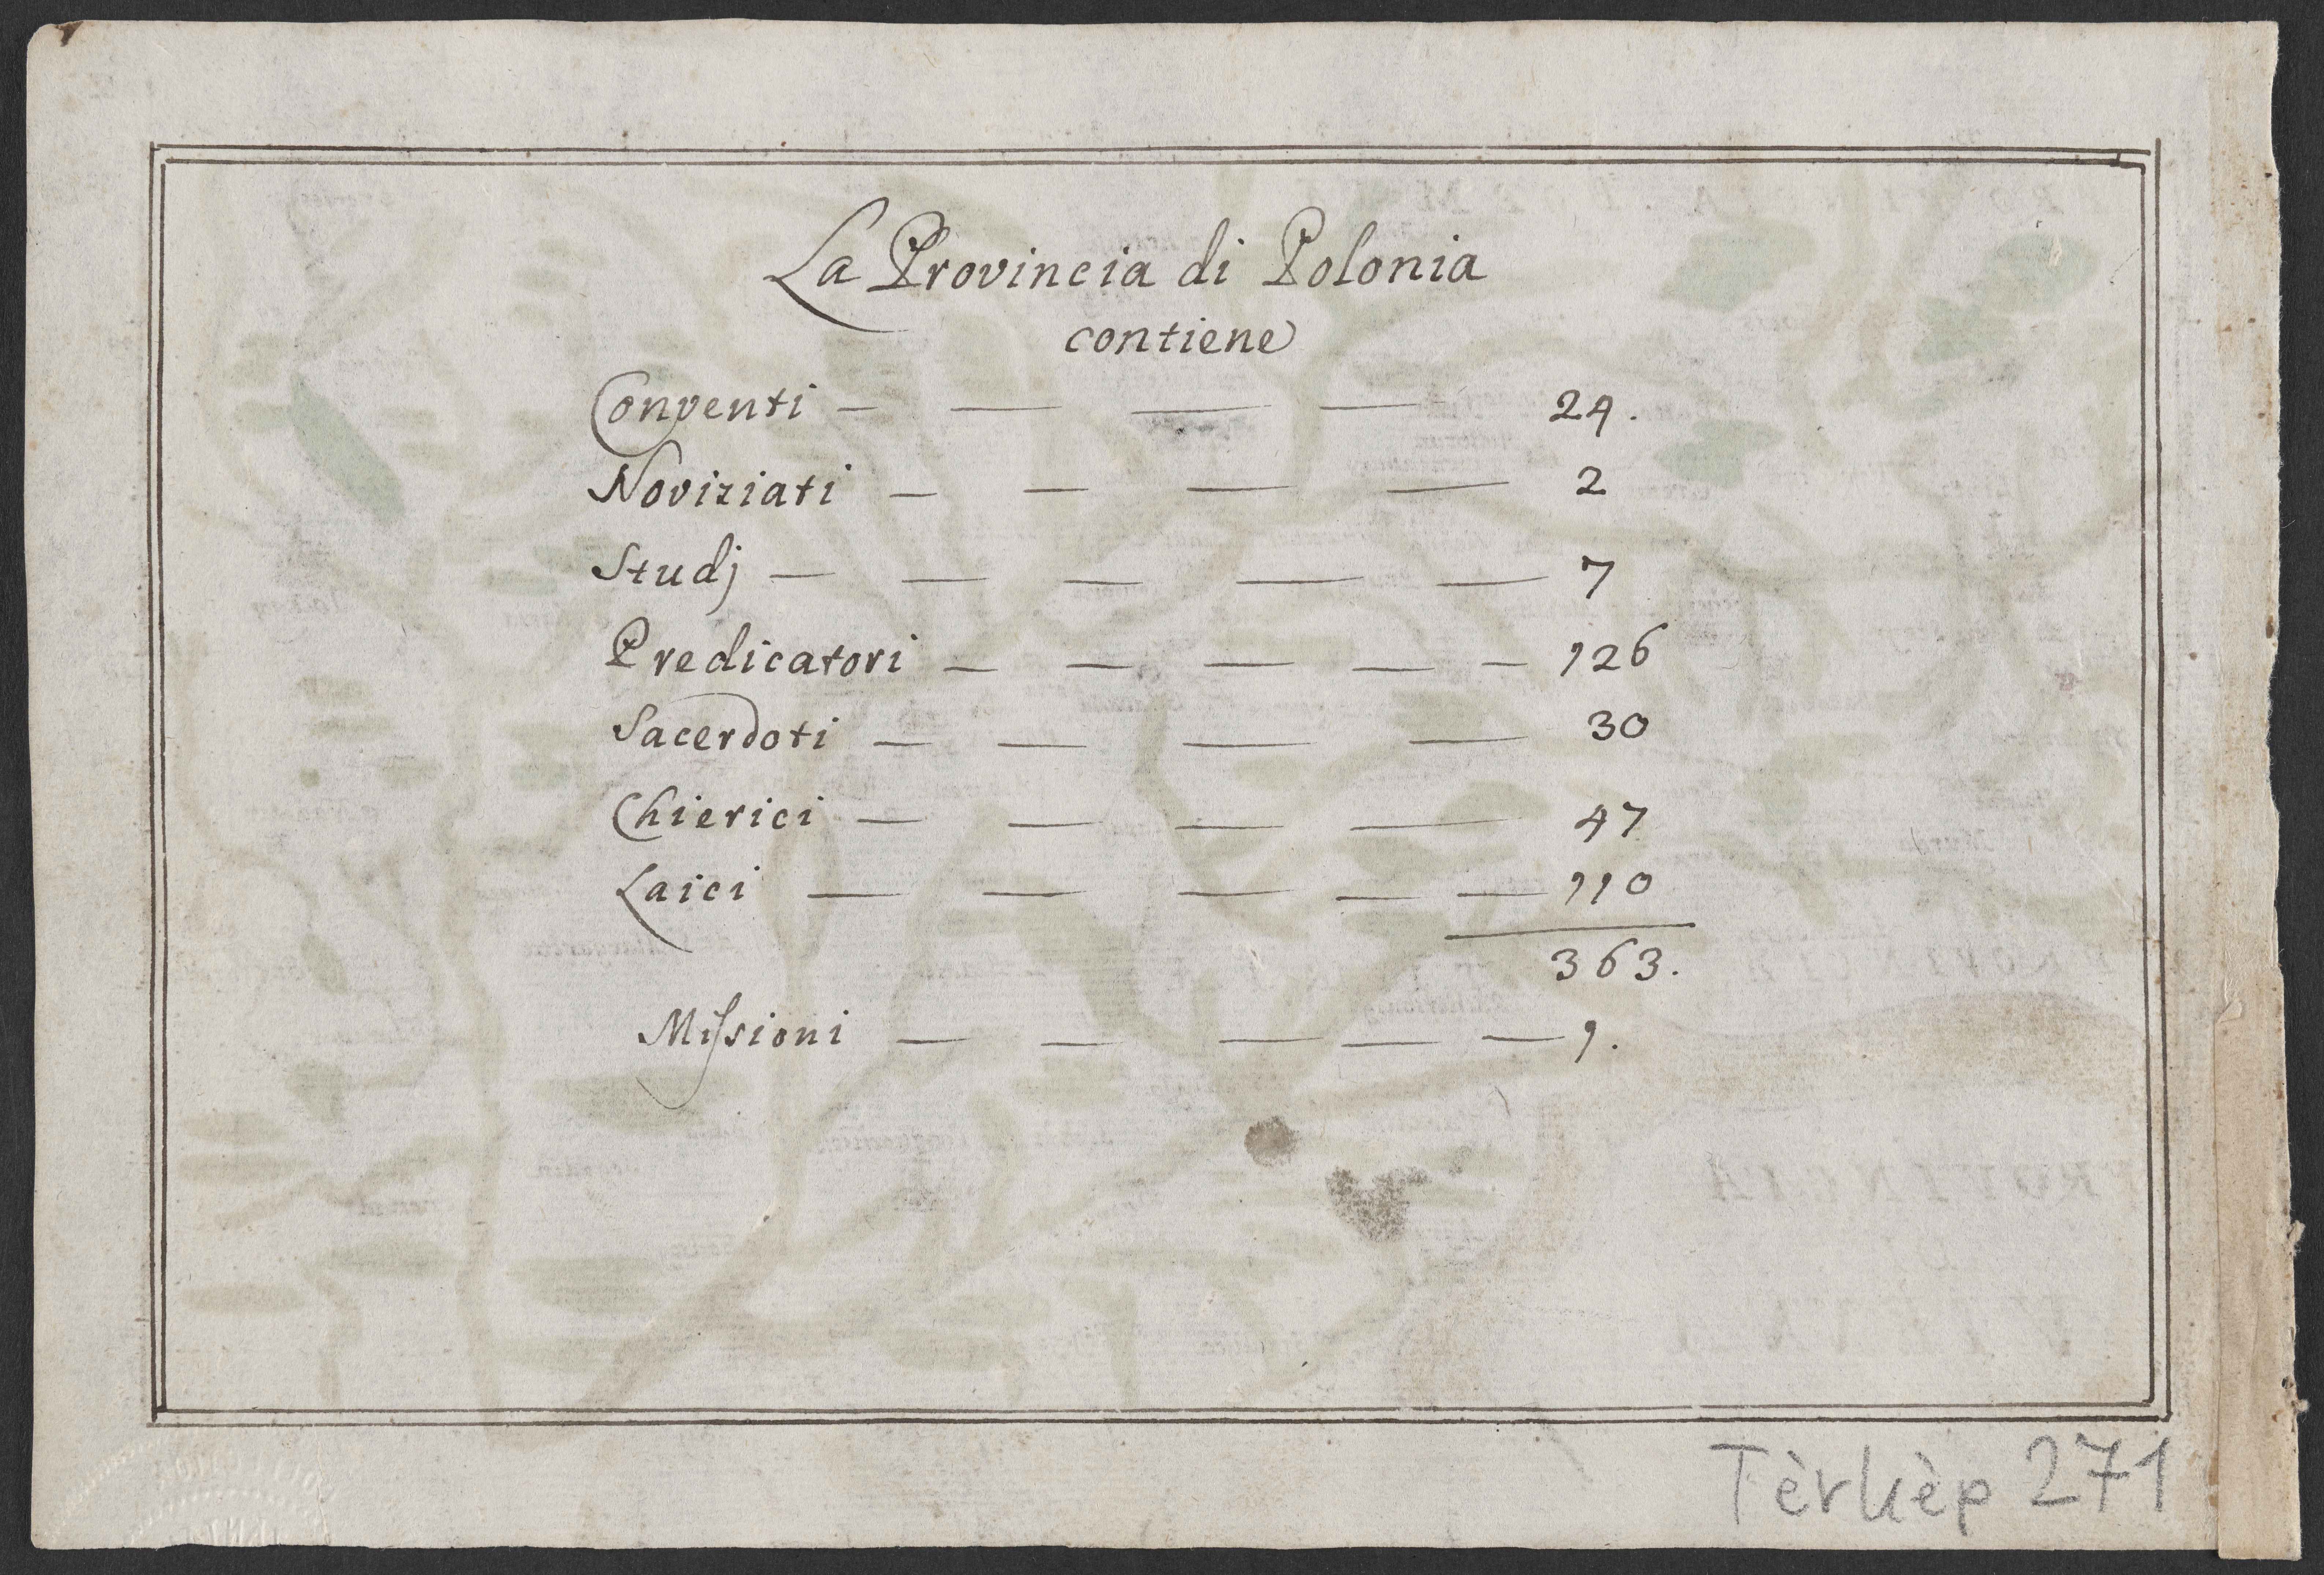 La Provincia di Polonia
contiene
Conventi — — — — 24.
Noviziati — — — — 2
Studj — — — — — 7
Predicatori — — — — — 126
Sacerdoti — — — — 30
Chierici — — — — 47
Laici — — — — — 110
363.
Missioni — — — — — 1.
Tèrkèp 271